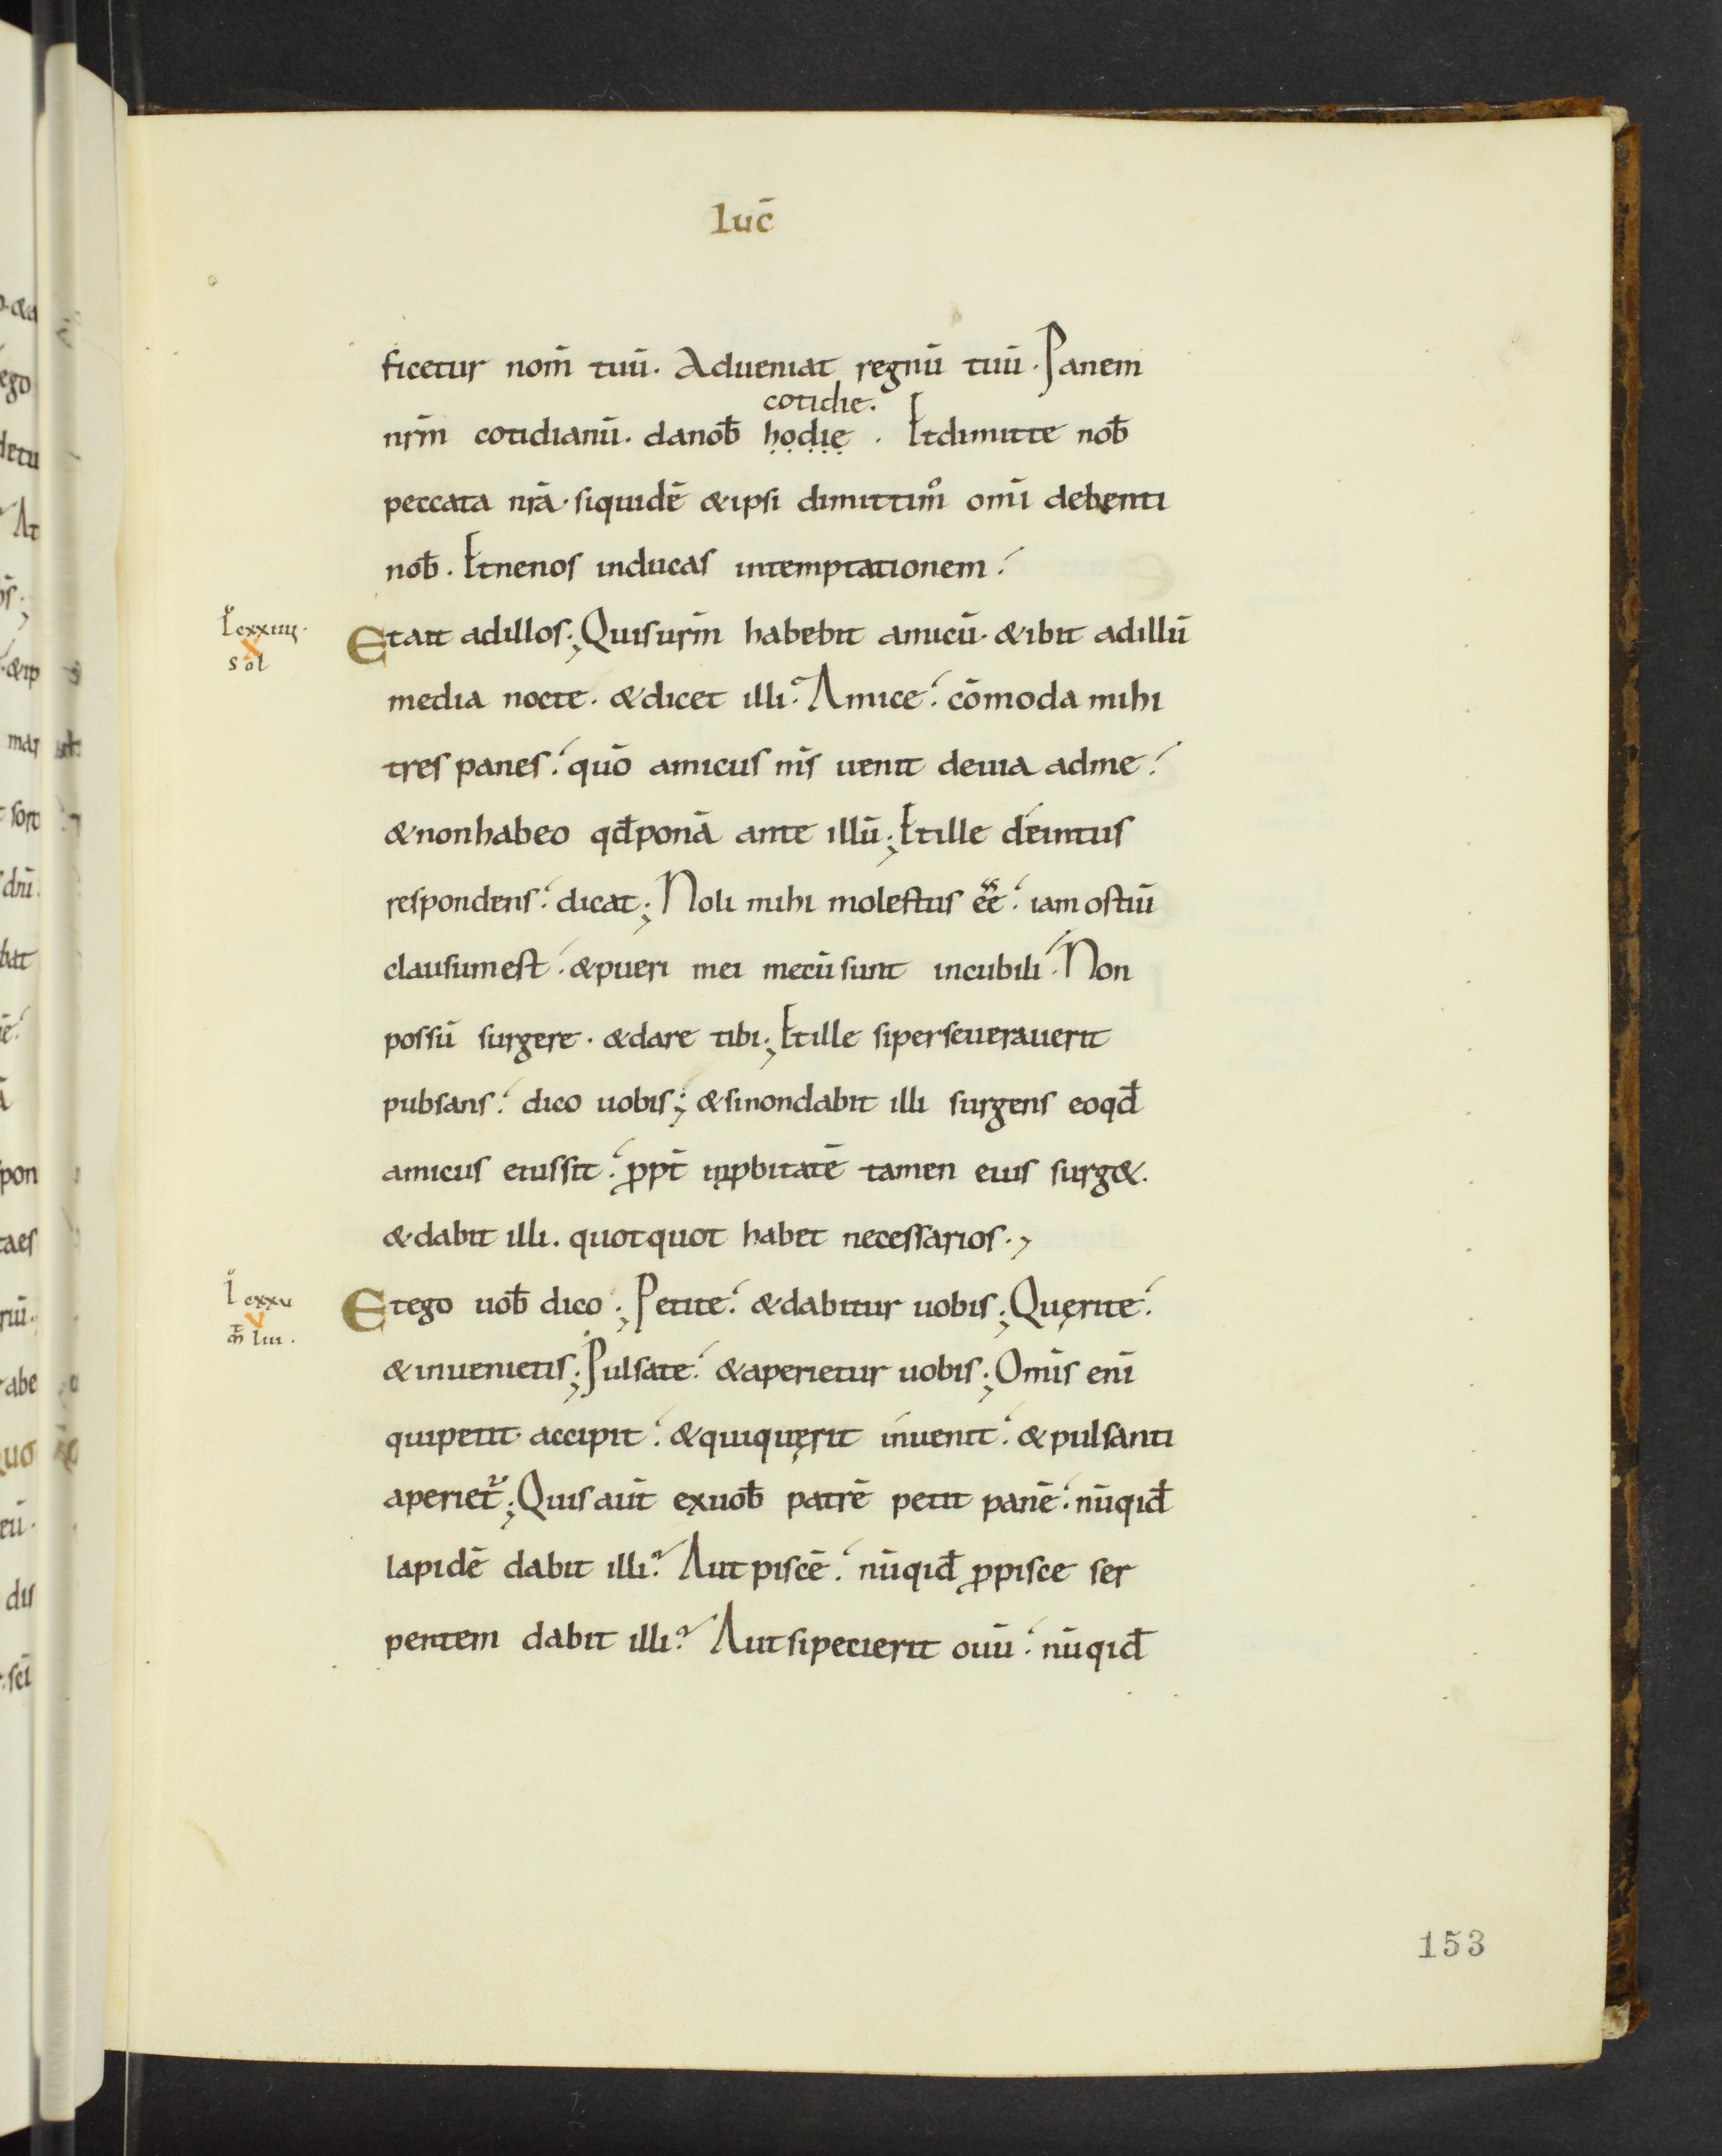 luc̄
ficetur nom̄ tuū. Adueniat regnū tuū. Panem
cotidie.
nrm̄ cotidianū. danob̄ hodie. Etdimitte nob̄
peccata nrā. siquidē &ipsi dimittim᷒ omī debenti
nob̄. Etnenos inducas intemptationem.
L cxxiiij.
X
sol
Etait adillos; Quisurm̄ habebit amicū. &ibit adillū
media nocte. &dicet illi. Amice. cōmoda mihi
tres panes. quō amicus ms̄ uenit deuia adme.
&nonhabeo qđponā ante illū; Etille deintus
respondens. dicat; Noli mihi molestus ēē. iam ostiū
clausumest. &pueri mei mecū sunt incubili. Non
possū surgere. &dare tibi; Etille siperseuerauerit
pubsans. dico uobis; &sinondabit illi surgens eoqđ
amicus eiussit. ꝓpt̄ inꝓbitatē tamen eius surg&.
&dabit illi. quotquot habet necessarios.,
L cxxu
V
m̄t liii.
Etego uob̄ dico; Petite. &dabitur uobis; Quęrite.
&inuenietis; Pulsate. &aperietur uobis; Omīs enī
quipetit. accipit. &quiquęrit inuenit. &pulsanti
aperiet᷑; Quis aūt exuob̄ patrē petit panē. nūqiđ
lapidē dabit illi? Aut piscē. nūqiđ ꝓpisce ser
pentem dabit illi? Autsipecierit ouū. nūqiđ
153